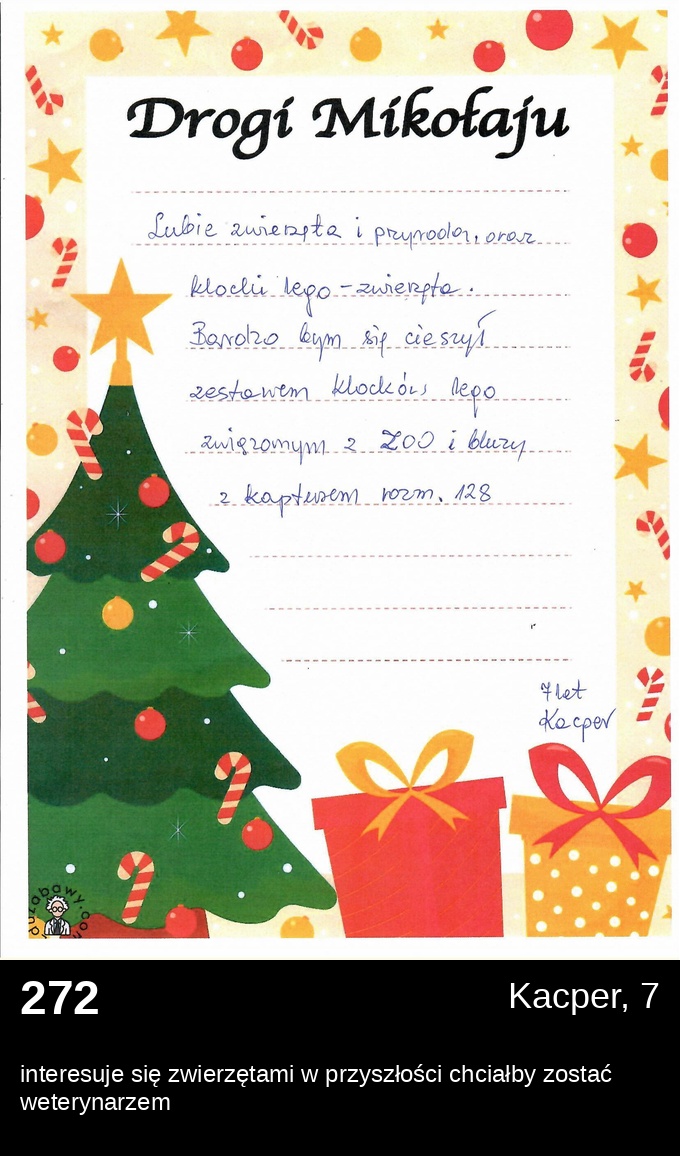 Drogi Mikołaju
Lubię zwierzęta i przyrodę, oraz
klocki lego - zwierzęta.
Bardzo bym się cieszył
zestawem klocków lego
związanym z ZOO i bluzy
z kapturem rozm. 128
7 lat
Kacper
duzabawy.com
272
Kacper, 7
interesuje się zwierzętami w przyszłości chciałby zostać
weterynarzem